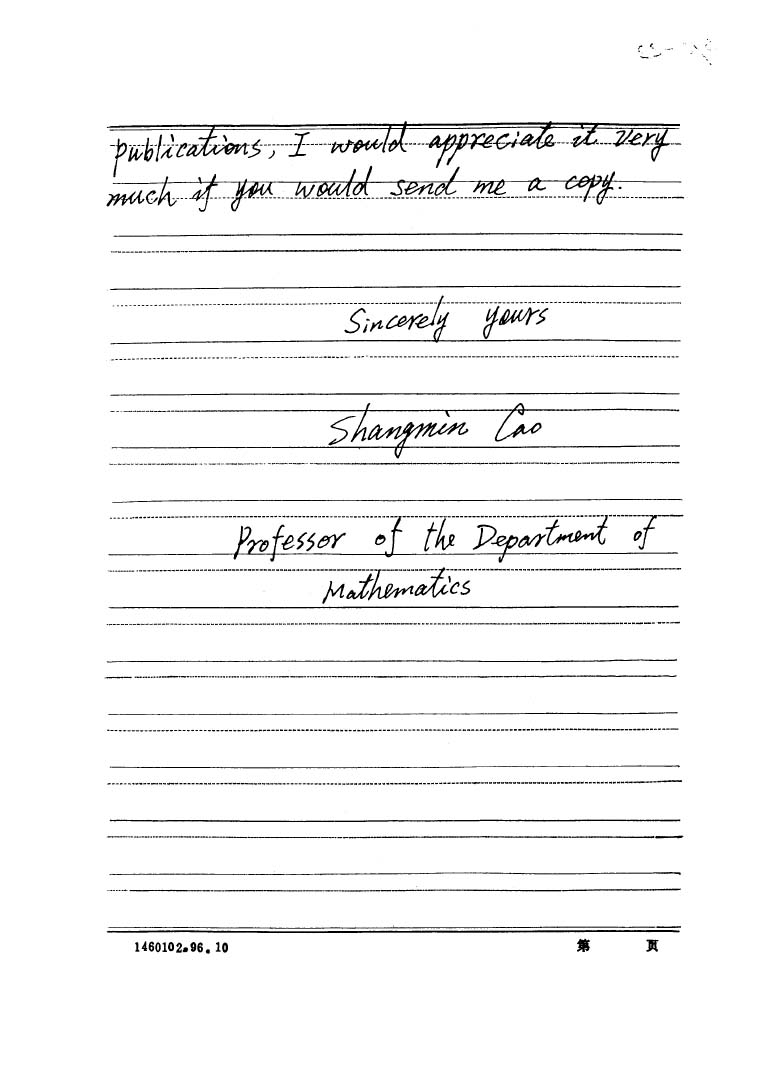 publications, I would appreciate it very
much if you would send me a copy.
Sincerely yours
Shangmin Cao
Professor of the Department of
Mathematics
1460102.96.10 第 页